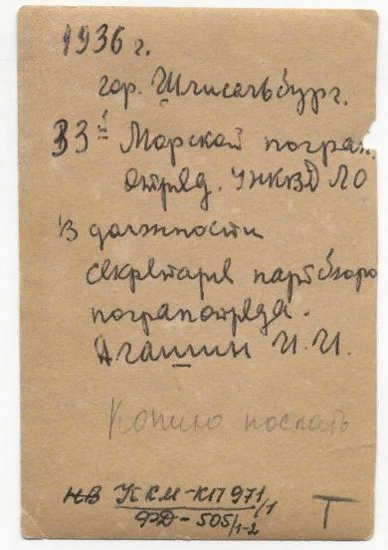 1936 г.
гор. Шлисельбург.
33й Морской погран.
отряд. УНКВД ЛО
В должности
секретаря партбюро
погранотряда.
Агашин И.И.
Копию послать
НВ ККМ-КП 971/1
ФД-505/1-2
Т